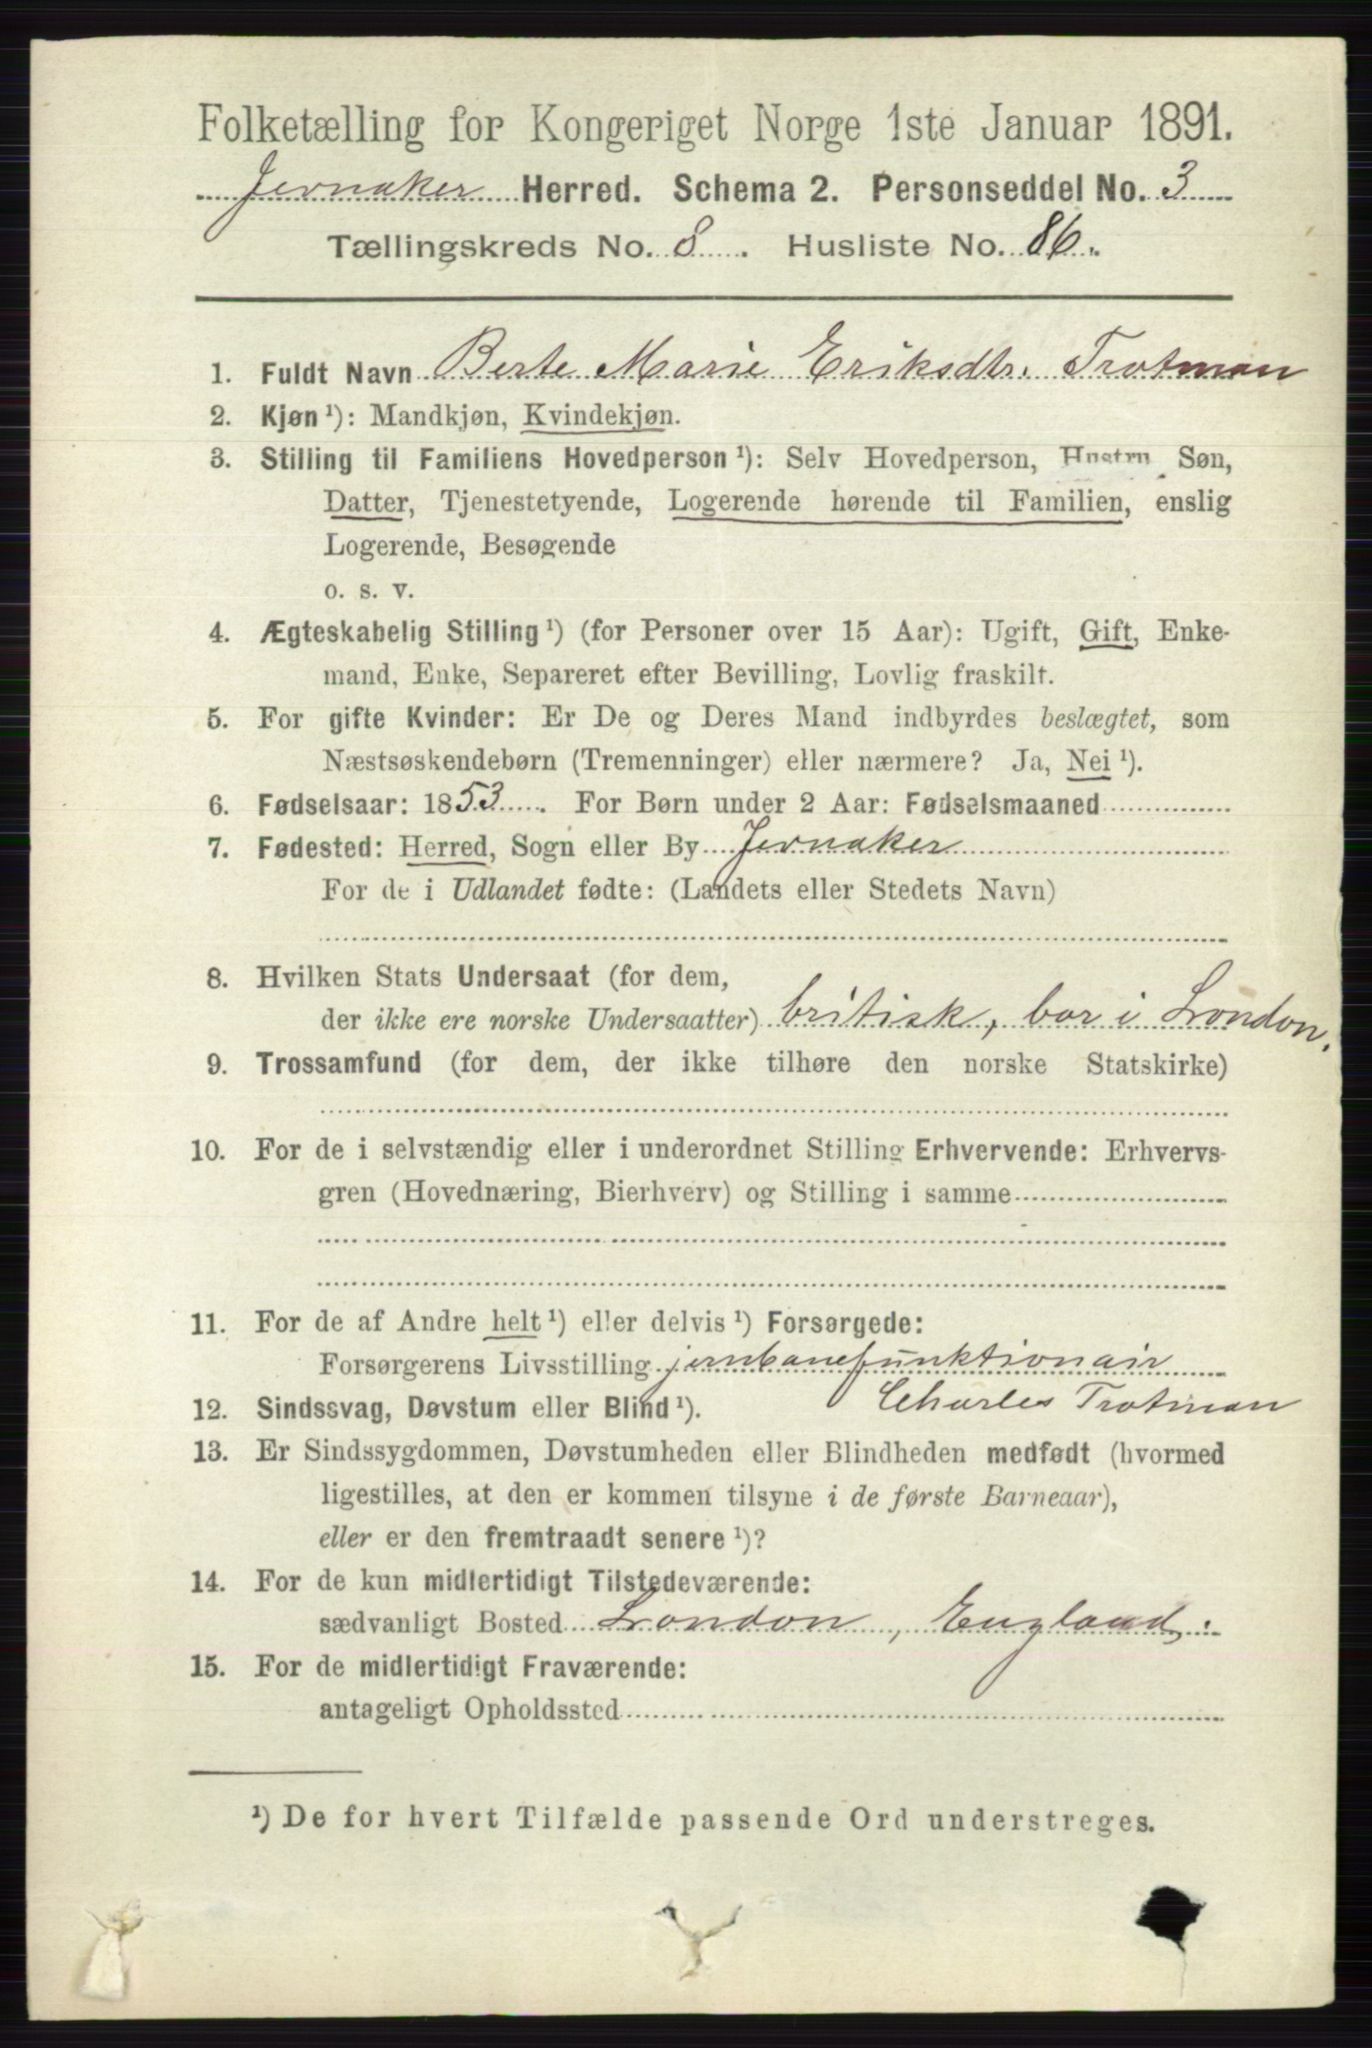 Folketælling for Kongeriget Norge 1ste Januar 1891.
Jevnaker Herred. Schema 2. Personseddel No. 3
Tællingskreds No. 8. Husliste No. 86.
1. Fuldt Navn Berte Marie Eriksdtr. Trotman
2. Kjøn ¹): Mandkjøn, Kvindekjøn.
3. Stilling til Familiens Hovedperson ¹): Selv Hovedperson, Hustru Søn,
Datter, Tjenestetyende, Logerende hørende til Familien, enslig
Logerende, Besøgende
o. s. v.
4. Ægteskabelig Stilling ¹) (for Personer over 15 Aar): Ugift, Gift, Enke-
mand, Enke, Separeret efter Bevilling, Lovlig fraskilt.
5. For gifte Kvinder: Er De og Deres Mand indbyrdes beslægtet, som
Næstsøskendebørn (Tremenninger) eller nærmere? Ja, Nei ¹).
6. Fødselsaar: 1853. For Børn under 2 Aar: Fødselsmaaned
7. Fødested: Herred, Sogn eller By Jevnaker
For de i Udlandet fødte: (Landets eller Stedets Navn)
8. Hvilken Stats Undersaat (for dem,
der ikke ere norske Undersaatter) britisk, bor i London.
9. Trossamfund (for dem, der ikke tilhøre den norske Statskirke)
10. For de i selvstændig eller i underordnet Stilling Erhvervende: Erhvervs-
gren (Hovednæring, Bierhverv) og Stilling i samme
11. For de af Andre helt ¹) eller delvis ¹) Forsørgede:
Forsørgerens Livsstilling jernbanefunktionair
Charles Trotman
12. Sindssvag, Døvstum eller Blind ¹).
13. Er Sindssygdommen, Døvstumheden eller Blindheden medfødt (hvormed
ligestilles, at den er kommen tilsyne i de første Barneaar),
eller er den fremtraadt senere ¹)?
14. For de kun midlertidigt Tilstedeværende:
sædvanligt Bosted London, England.
15. For de midlertidigt Fraværende:
antageligt Opholdssted
¹) De for hvert Tilfælde passende Ord understreges.